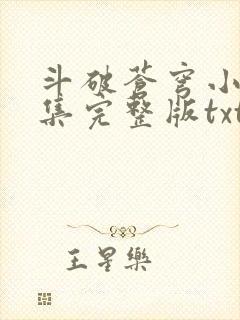 斗破苍穹小
集完整版txt
王星樂